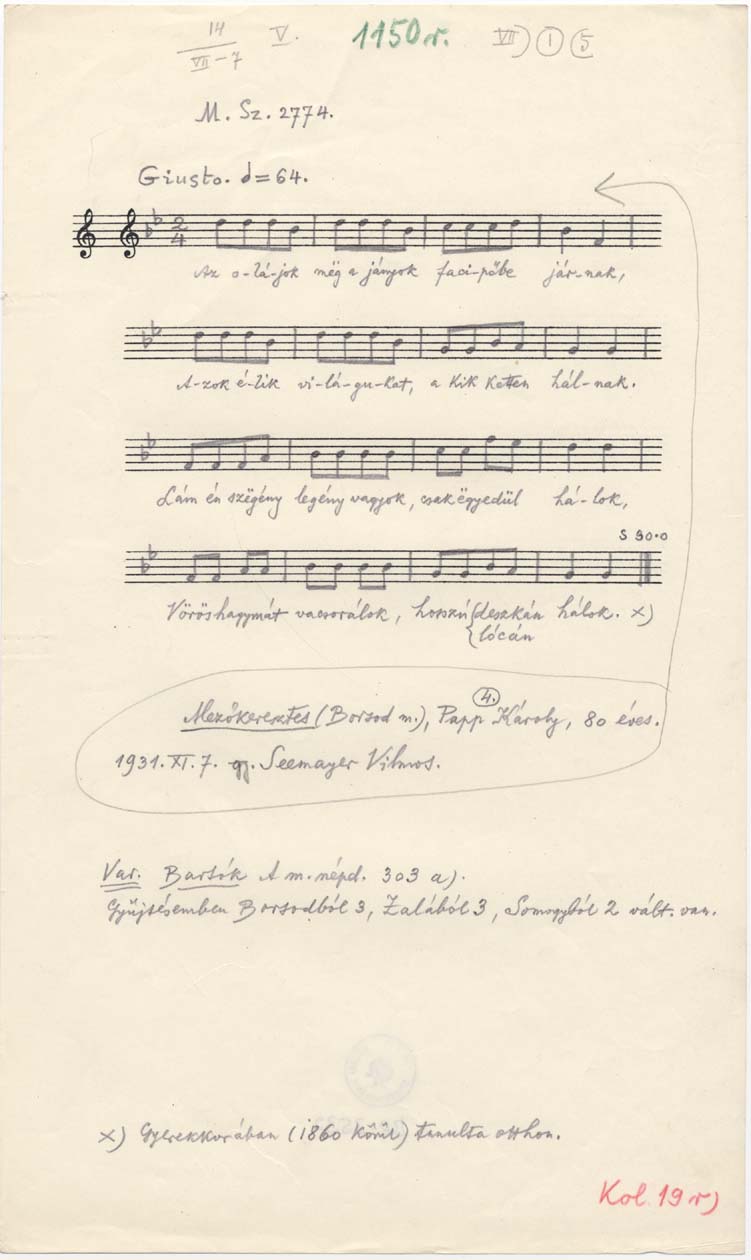 14 V. 1150 r. VII) 1 5
VII-7
M. Sz. 2774.
Giusto. 𝅗𝅥=64.
2
4
Az o-lá-jok még a jányok faci-pőbe jár-nak,
A-zok é-lik vi-lá-gu-kat, a kik ketten hál-nak.
Lám én szëgény legény vagyok, csak ëgyedül há-lok,
S 30.0
Vöröshagymát vacsorálok, hosszú {deszkán hálok. x)
{lócán
4.
Mezőkeresztes (Borsod m.), Papp Károly, 80 éves.
1931. XI. 7. gy. Seemayer Vilmos.
Var. Bartók A m. népd. 303 a).
Gyűjtésemben Borsodból 3, Zalából 3, Somogyból 2 vált. van.
x) Gyerekkorában (1860 körül) tanulta otthon.
Kol. 19 r)